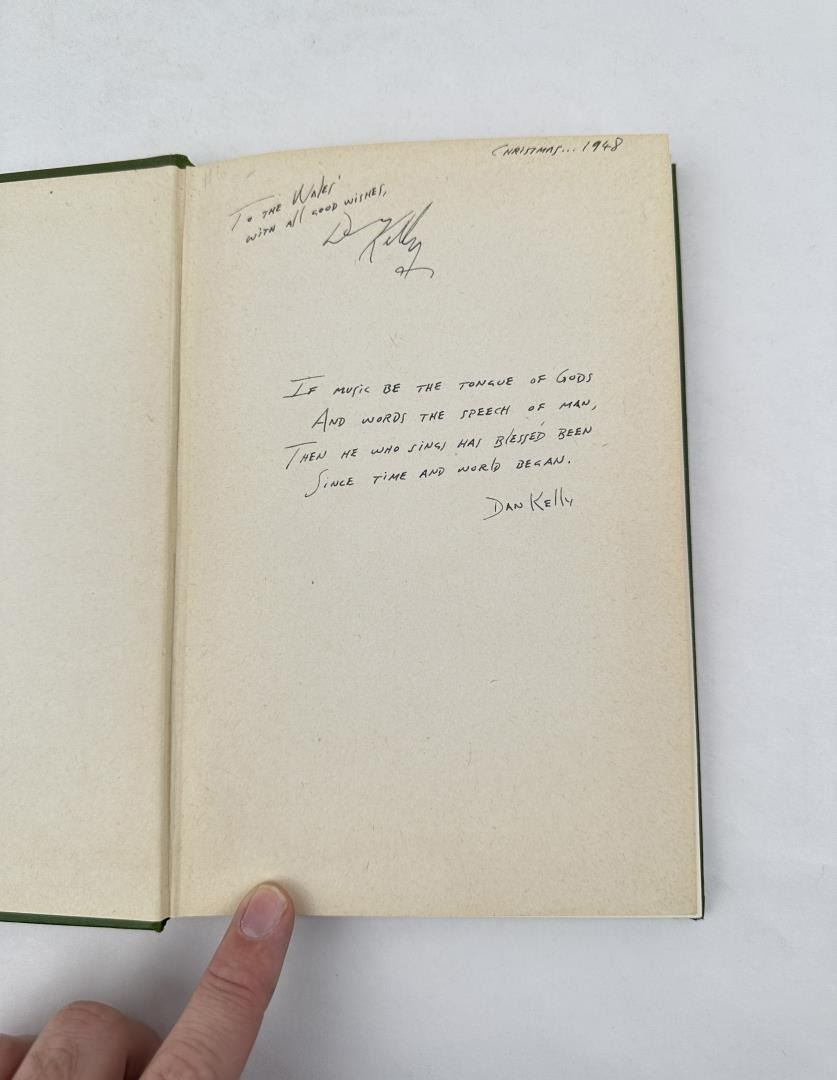 Christmas... 1948
To the Wales'
with all good wishes,
Dan Kelly
If music be the tongue of Gods
And words the speech of man,
Then he who sings has blessed been
Since time and world began.
Dan Kelly